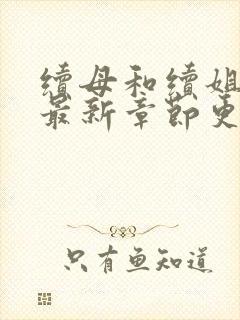 續母和續姐
最新章節更
只有魚知道